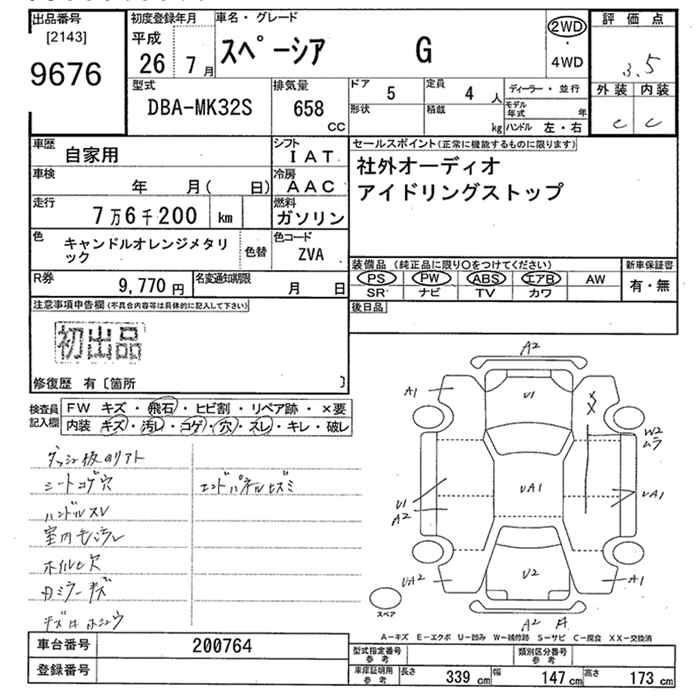 出品番号
[2143]
9676
初度登録年月
平成
26 7月
車名・グレード
スペーシア G
2WD
・
4WD
評価点
3.5
外装 内装
C C
型式
DBA-MK32S
排気量
658
CC
ドア 5
定員 4人
形状
積載 kg
ディーラー・並行
モデル年式 年
ハンドル 左・右
車歴
自家用
シフト
IAT
車検
年 月( 日)
冷房
AAC
走行
7万6千200 km
燃料
ガソリン
色
キャンドルオレンジメタリック
色替
色コード
ZVA
R券
9,770円
名変通知期限
月 日
セールスポイント(正常に機能するものに限ります)
社外オーディオ
アイドリングストップ
装備品 (純正品に限り○をつけてください)
PS PW ABS エアB AW
SR ナビ TV カワ
新車保証書
有・無
後日品
注意事項申告欄(不具合内容等は具体的に記入して下さい)
初出品
修復歴 有〔箇所 〕
検査員記入欄
FW キズ・飛石・ヒビ割・リペア跡・×要
内装 キズ・汚レ・コゲ・穴・スレ・キレ・破レ
シートコゲ穴
エンドパネルヒズミ
ハンドルスレ
A2
A1
U1
XX
W2
ムラ
UA1
U1
A2
UA1
UA2
U2
A1
A2
スペア
A-キズ E-エクボ U-凹み W-補修跡 S-サビ C-腐食 XX-交換済
車台番号 200764
登録番号
型式指定番号
参考
類別区分番号
参考
車庫証明用
参考
長さ 339 cm
幅 147 cm
高さ 173 cm